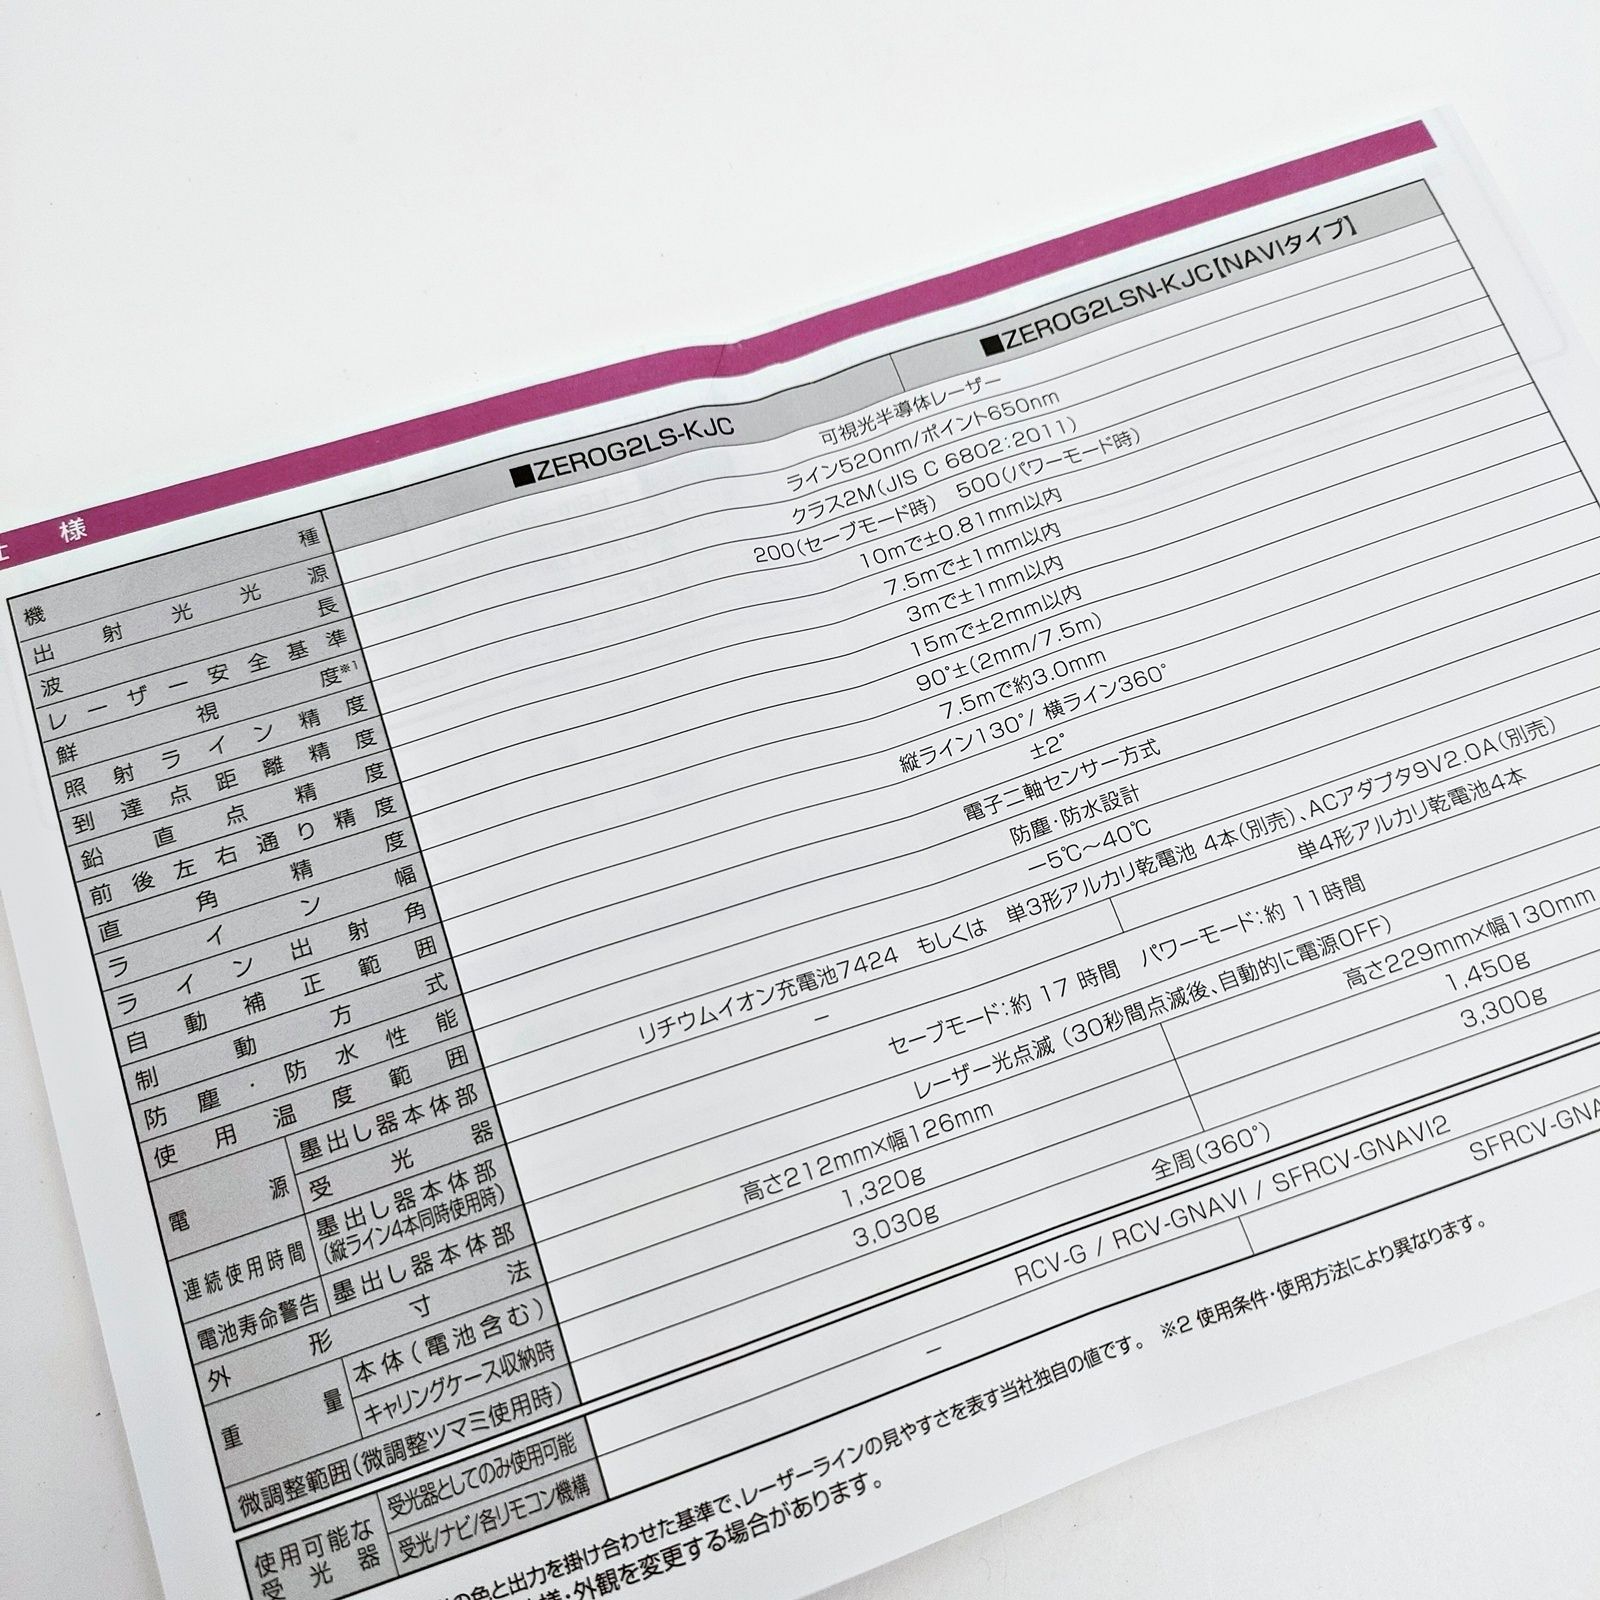 様
機種 ■ZEROG2LS-KJC ■ZEROG2LSN-KJC【NAVIタイプ】
出射光光源 可視光半導体レーザー
波長 ライン520nm/ポイント650nm
レーザー安全基準 クラス2M(JIS C 6802:2011)
鮮視度※1 200(セーブモード時) 500(パワーモード時)
照射ライン精度 10mで±0.81mm以内
到達点距離精度 7.5mで±1mm以内
鉛直点精度 3mで±1mm以内
前後左右通り精度 15mで±2mm以内
直角精度 90°±(2mm/7.5m)
ライン幅 7.5mで約3.0mm
ライン出射角 縦ライン130°/ 横ライン360°
自動補正範囲 ±2°
制動方式 電子二軸センサー方式
防塵・防水性能 防塵・防水設計
使用温度範囲 −5℃〜40℃
電源 墨出し器本体部 リチウムイオン充電池7424 もしくは 単3形アルカリ乾電池 4本(別売)、ACアダプタ9V2.0A(別売)
受光器 − 単4形アルカリ乾電池4本
連続使用時間 墨出し器本体部 (縦ライン4本同時使用時) セーブモード:約 17 時間 パワーモード:約 11時間
電池寿命警告 墨出し器本体部 レーザー光点滅 (30秒間点滅後、自動的に電源OFF)
外形寸法 高さ212mm×幅126mm 高さ229mm×幅130mm
重量 本体(電池含む) 1,320g 1,450g
キャリングケース収納時 3,030g 3,300g
微調整範囲(微調整ツマミ使用時) 全周(360°)
使用可能な受光器 受光器としてのみ使用可能 RCV-G / RCV-GNAVI / SFRCV-GNAVI2
受光/ナビ/各リモコン機構 − SFRCV-GNA
の色と出力を掛け合わせた基準で、レーザーラインの見やすさを表す当社独自の値です。 ※2 使用条件・使用方法により異なります。
様・外観を変更する場合があります。